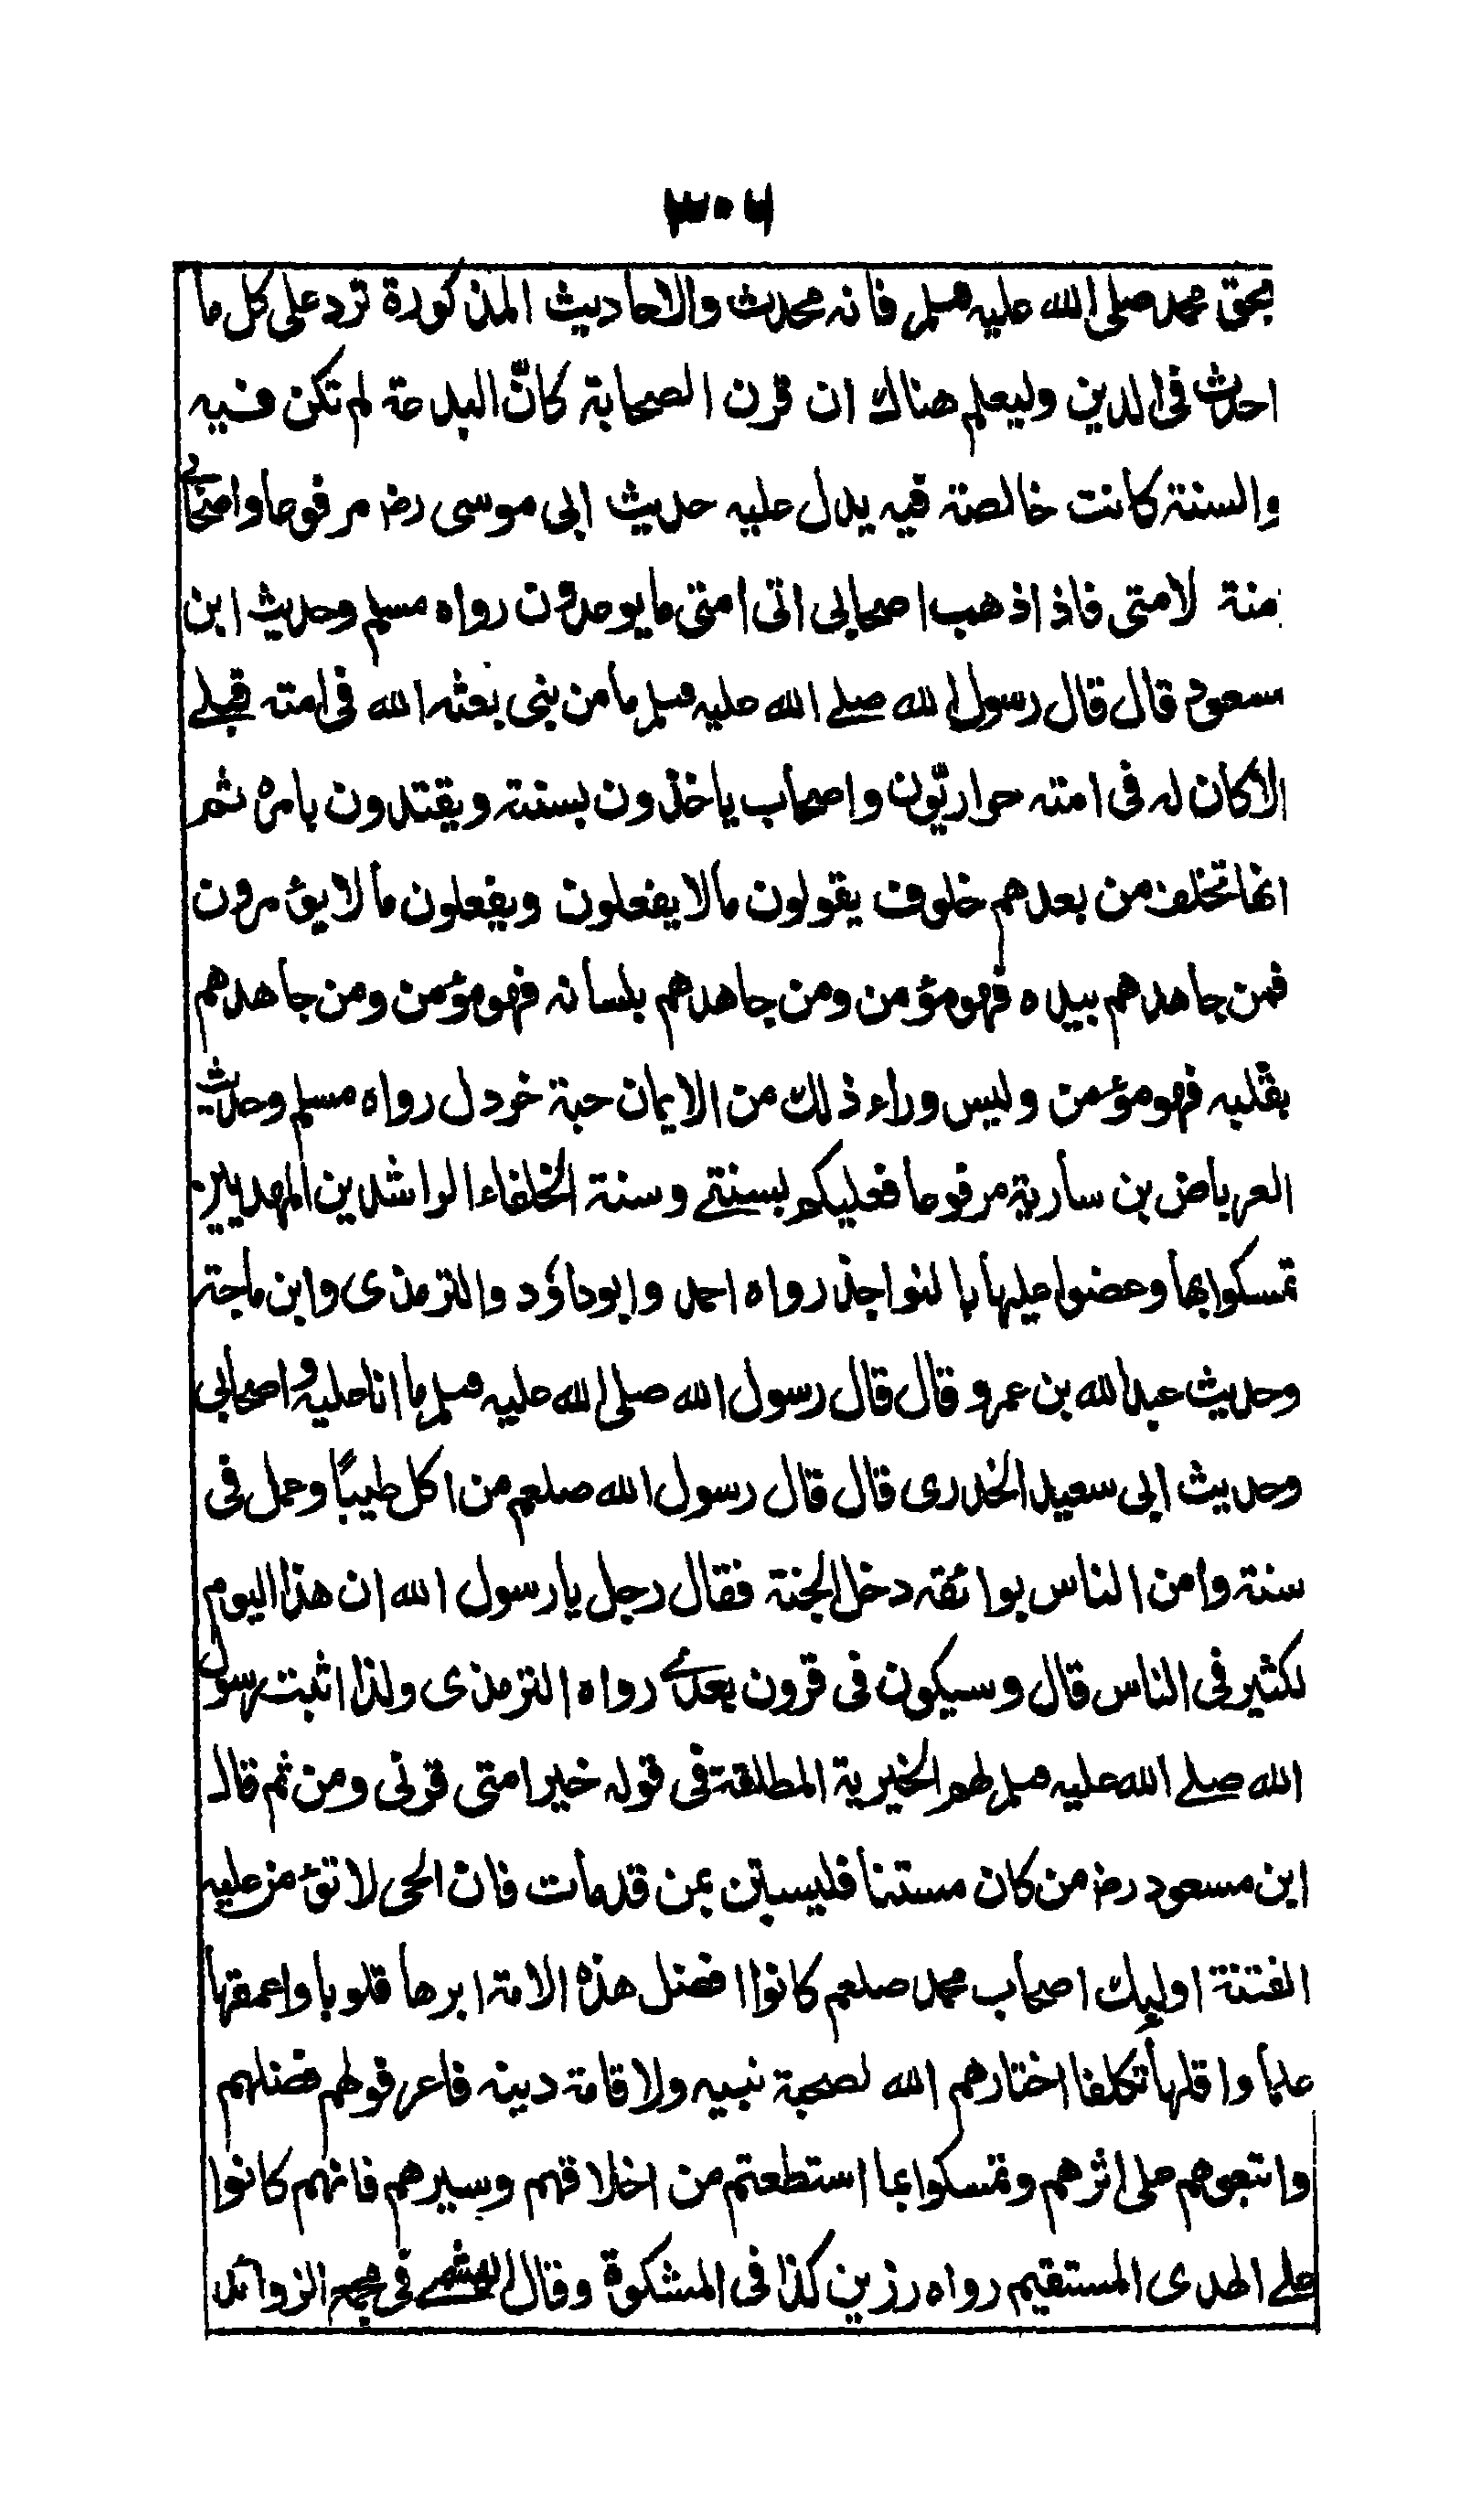 ٣٠٦
بحق محمد صلى الله عليه وسلم فانه محدث والاحاديث المذكورة ترد على كل ما
احدث فى الدين وليعلم هناك ان قرن الصحابة كانّ البدعة لم تكن فيه
والسنة كانت خالصة فيه يدل عليه حديث ابى موسى رض مرفوعا واصحابى
منة لامتى فاذا ذهب اصحابى اتى امتى ما يوعدون رواه مسلم وحديث ابن
مسعود قال قال رسول الله صلے الله عليه وسلم ما من نبى بعثه الله فى امته قبلے
الا كان له فى امته حواريّون واصحاب ياخذون بسنته ويقتدون بامره ثم
انها تخلف من بعدهم خلوف يقولون ما لا يفعلون ويفعلون ما لا يؤمرون
فمن جاهدهم بيده فهو مؤمن ومن جاهدهم بلسانه فهو مؤمن ومن جاهدهم
بقلبه فهو مؤمن وليس وراء ذلك من الايمان حبة خردل رواه مسلم وحديث
العرباض بن سارية مرفوعا فعليكم بسنتے وسنة الخلفاء الراشدين المهديين
تمسكوا بها وعضوا عليها بالنواجذ رواه احمد وابوداؤد والترمذى وابن ماجة
وحديث عبد الله بن عمرو قال قال رسول الله صلى الله عليه وسلم ما انا عليه واصحابى
وحديث ابى سعيد الخدرى قال قال رسول الله صلعم من اكل طيبًا وعمل فى
سنة وامن الناس بوائقه دخل الجنة فقال رجل يا رسول الله ان هذا اليوم
لكثير فى الناس قال وسيكون فى قرون بعدے رواه الترمذى ولذا اثبت رسول
الله صلے الله عليه وسلم لهم الخيرية المطلقة فى قوله خير امتى قرنى ومن ثم قال
ابن مسعود رض من كان مستنا فليستن بمن قد مات فان الحى لا تؤمن عليه
الفتنة اوليك اصحاب محمد صلعم كانوا افضل هذه الامة ابرها قلوبا واعمقها
علما واقلها تكلفا اختارهم الله لصحبة نبيه ولاقامة دينه فاعرفوا لهم فضلهم
واتبعوهم على اثرهم وتمسكوا بما استطعتم من اخلاقهم وسيرهم فانهم كانوا
علے الهدى المستقيم رواه رزين كذا فى المشكوة وقال الهيثمے فى مجمع الزوائد